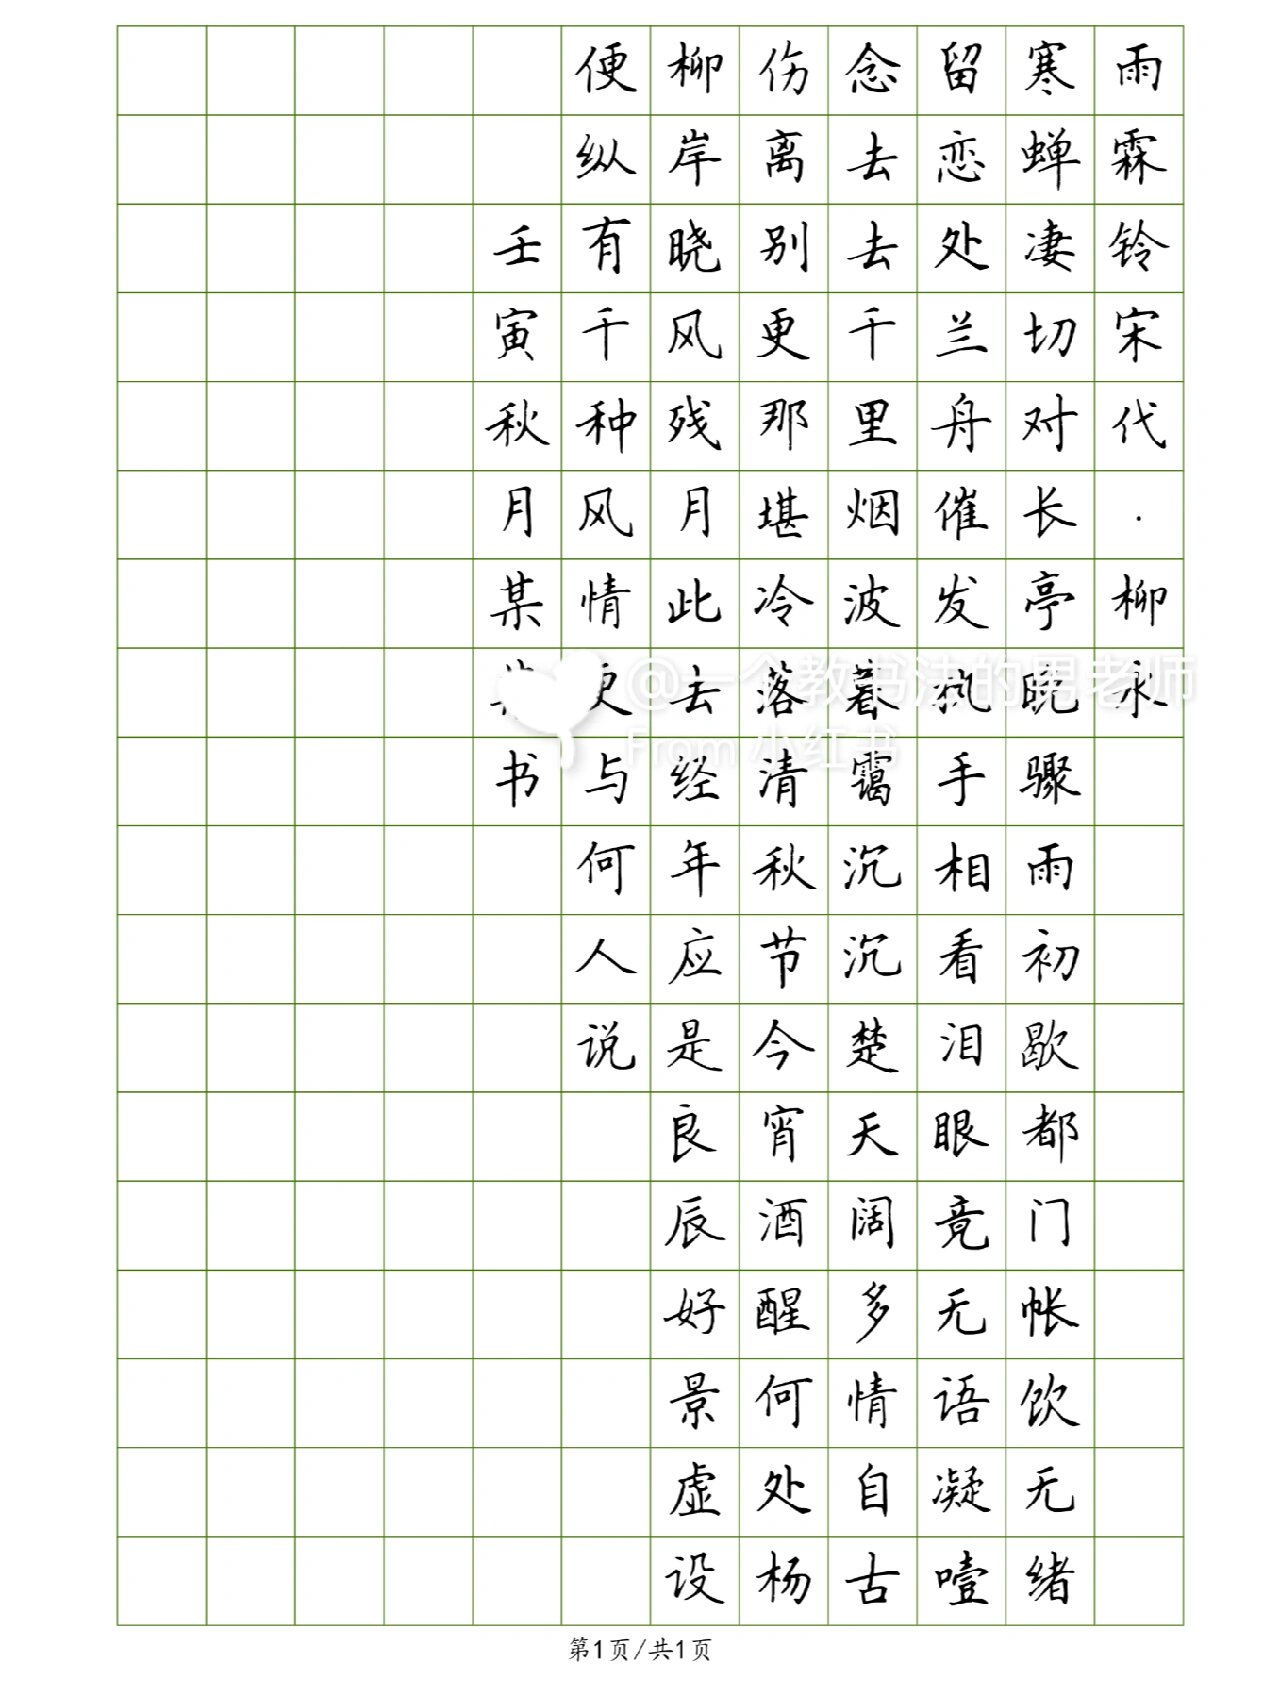 雨霖铃宋代·柳永
寒蝉凄切对长亭晚骤雨初歇都门帐饮无绪
留恋处兰舟催发执手相看泪眼竟无语凝噎
念去去千里烟波暮霭沉沉楚天阔多情自古
伤离别更那堪冷落清秋节今宵酒醒何处杨
柳岸晓风残月此去经年应是良辰好景虚设
便纵有千种风情更与何人说
壬寅秋月某某书
@一个教书法的男老师
From 小红书
第1页/共1页